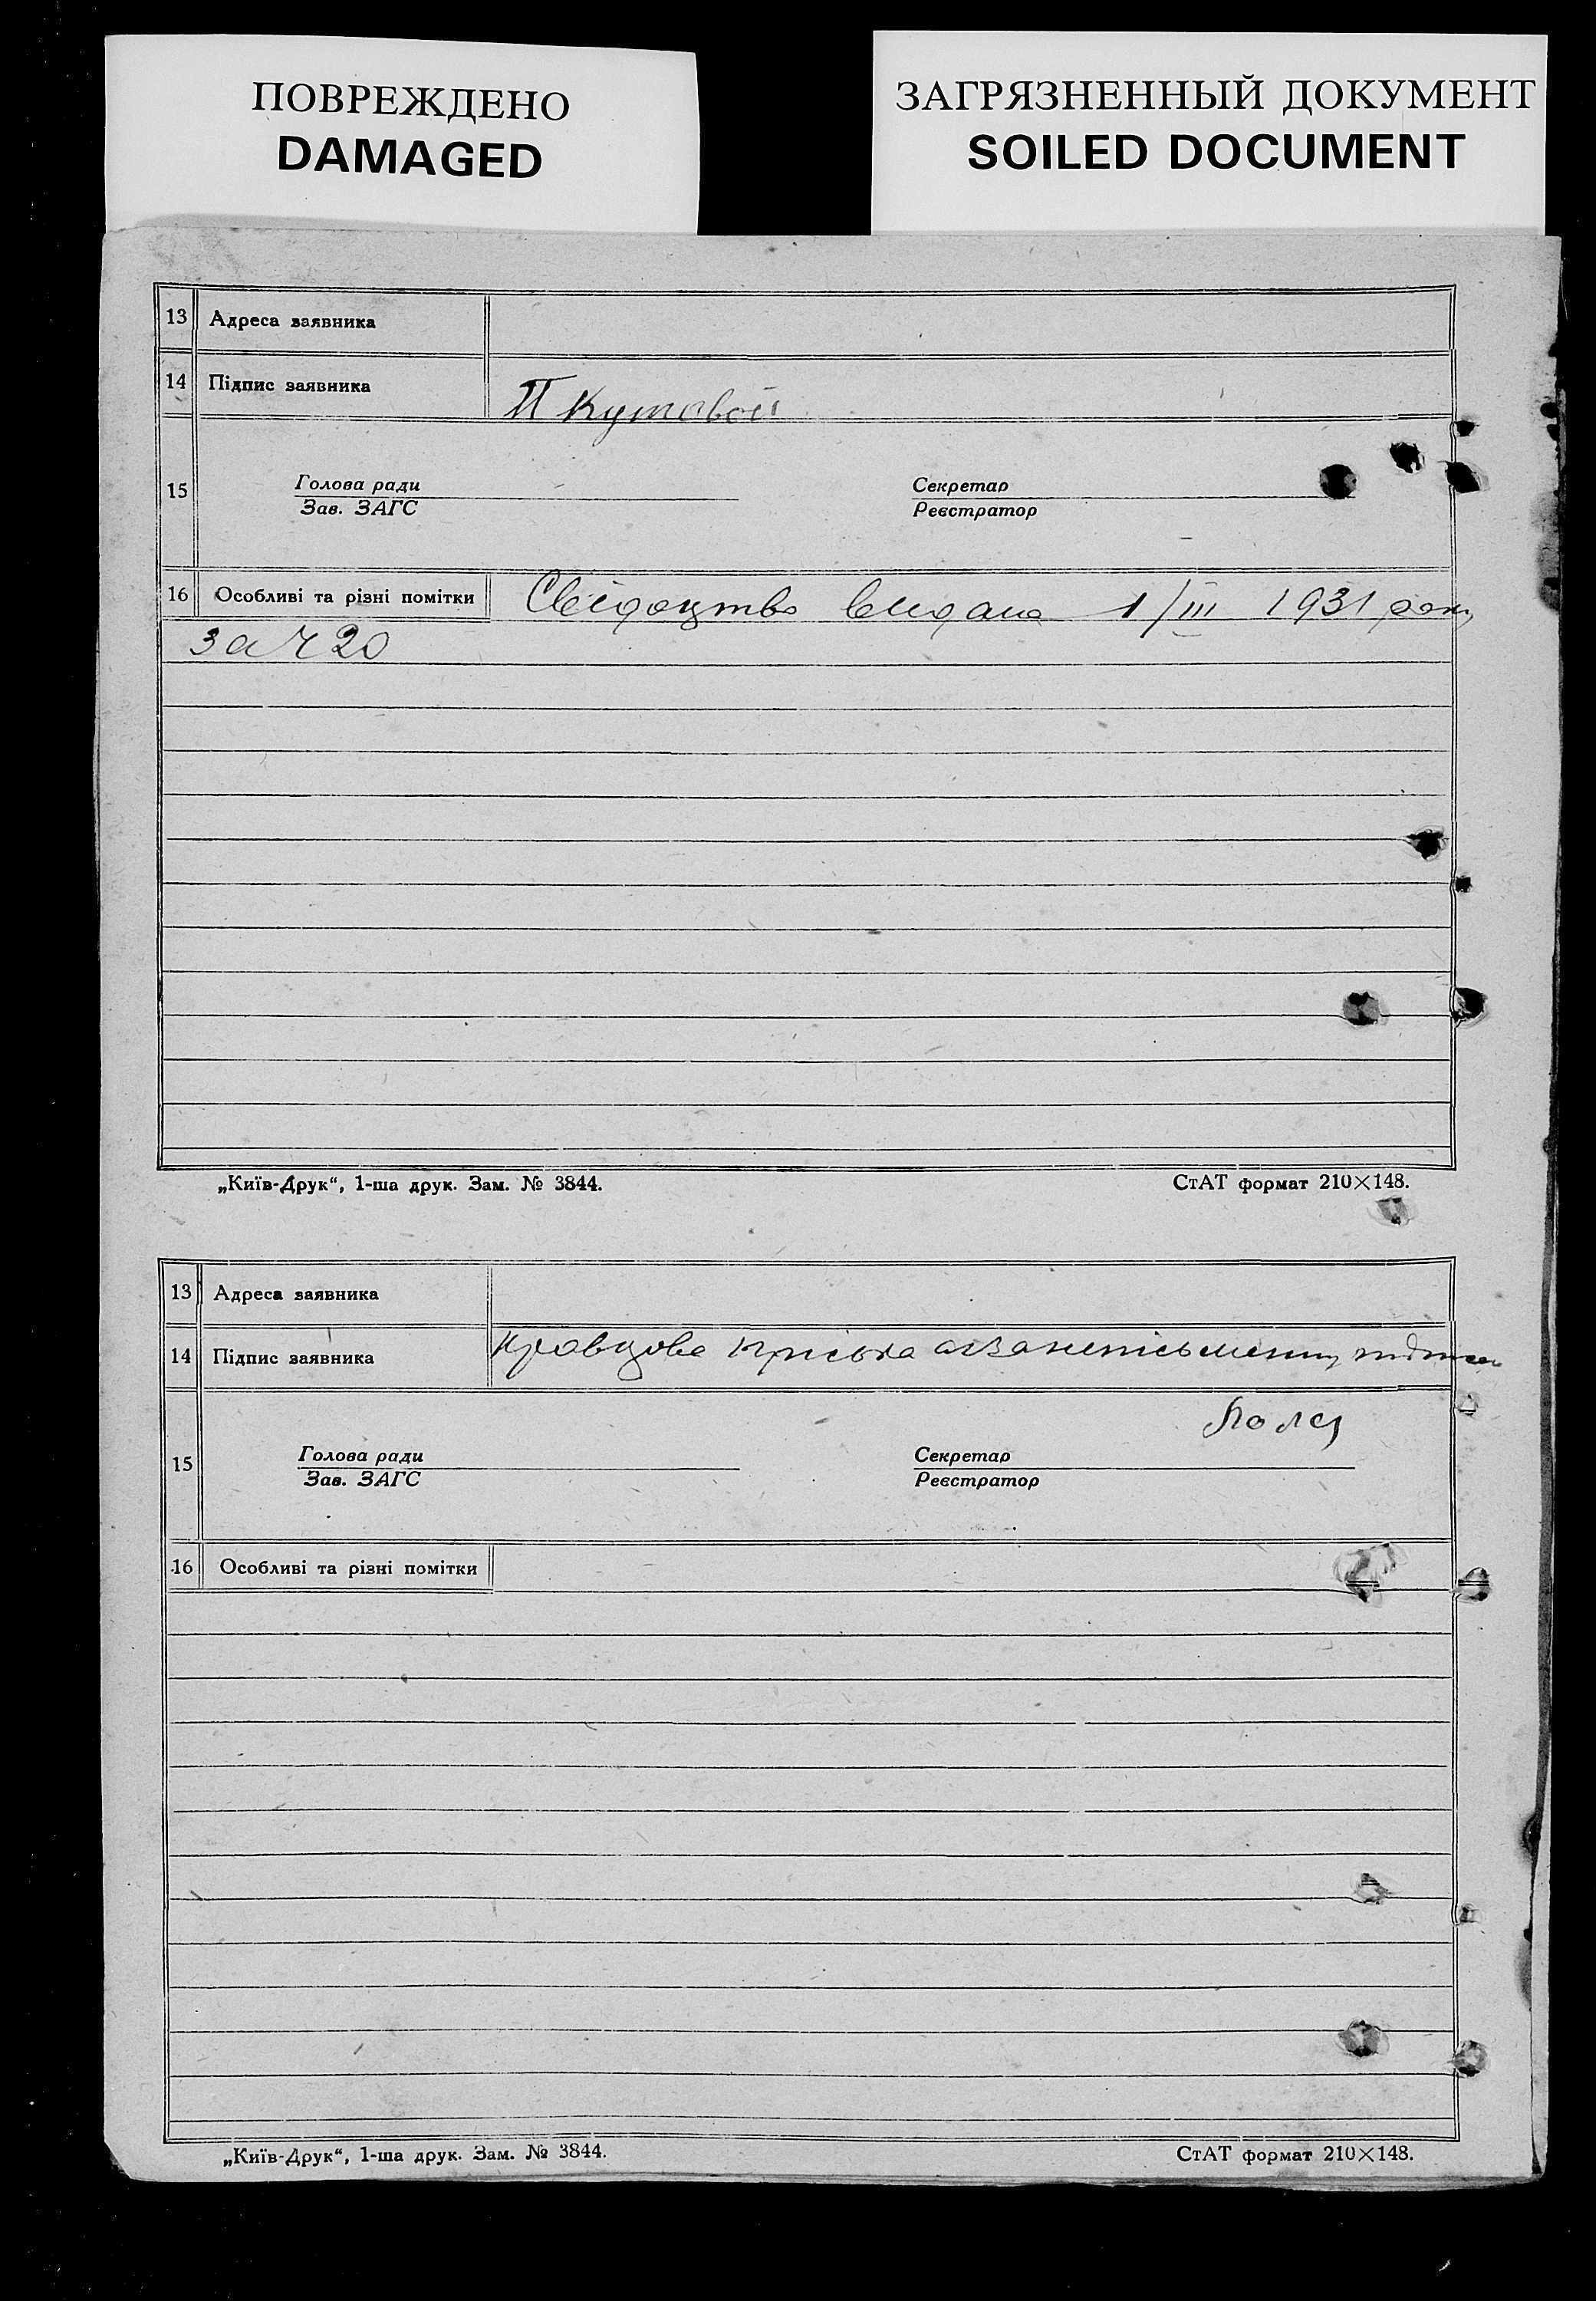 ПОВРЕЖДЕНО
DAMAGED
ЗАГРЯЗНЕННЫЙ ДОКУМЕНТ
SOILED DOCUMENT
13 Адреса заявника
14 Підпис заявника П Кутовой
15 Голова ради Секретар
Зав. ЗАГС Реєстратор
16 Особливі та різні помітки Свідоцтво видано 1/III 1931 року
за Ч 20
„Київ-Друк“, 1-ша друк. Зам. № 3844. СтАТ формат 210×148.
13 Адреса заявника
14 Підпис заявника Кравцова
15 Голова ради Секретар
Зав. ЗАГС Реєстратор
16 Особливі та різні помітки
„Київ-Друк“, 1-ша друк. Зам. № 3844. СтАТ формат 210×148.